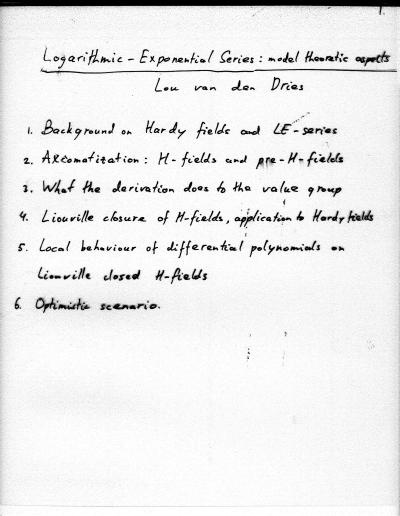 1.
Logarithmic - Exponential Series : model theoretic aspects
Lou van den Dries
1. Background on Hardy fields and LE-series
2. Axiomatization : H-fields and pre-H-fields
3. What the derivation does to the value group
4. Liouville closure of H-fields, application to Hardy fields
5. Local behaviour of differential polynomials on
Liouville closed H-fields
6. Optimistic scenario.